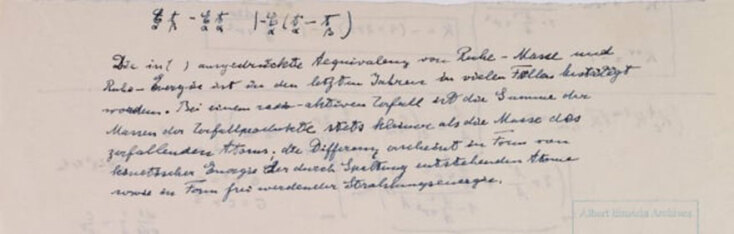 Die in ( ) ausgedrückte Aequivalenz von Ruhe-Masse und
Ruhe-Energie ist in den letzten Jahren in vielen Fällen bestätigt
worden. Bei einem radi-aktiven Zerfall ist die Summe der
Massen der Zerfallprodukte stets kleiner als die Masse des
zerfallenden Atoms; die Differenz erscheint in Form von
kinetischer Energie der durch Spaltung entstehenden Atome
sowie in Form frei werdender Strahlungsenergie.
Albert Einstein Archives